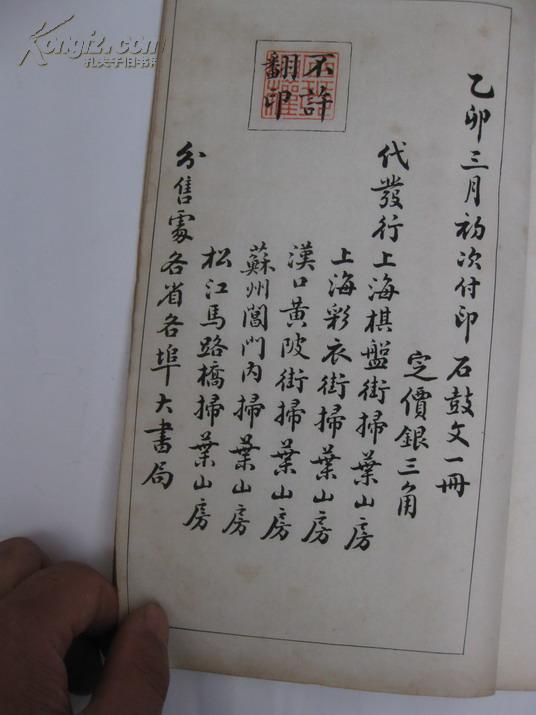 乙卯三月初次付印 石鼓文一冊
定價銀三角
代發行上海棋盤街掃葉山房
上海彩衣街掃葉山房
漢口黃陂街掃葉山房
蘇州閶門內掃葉山房
松江馬路橋掃葉山房
分售處各省各埠大書局
不許
翻印
Kongfz.com
孔夫子旧书网